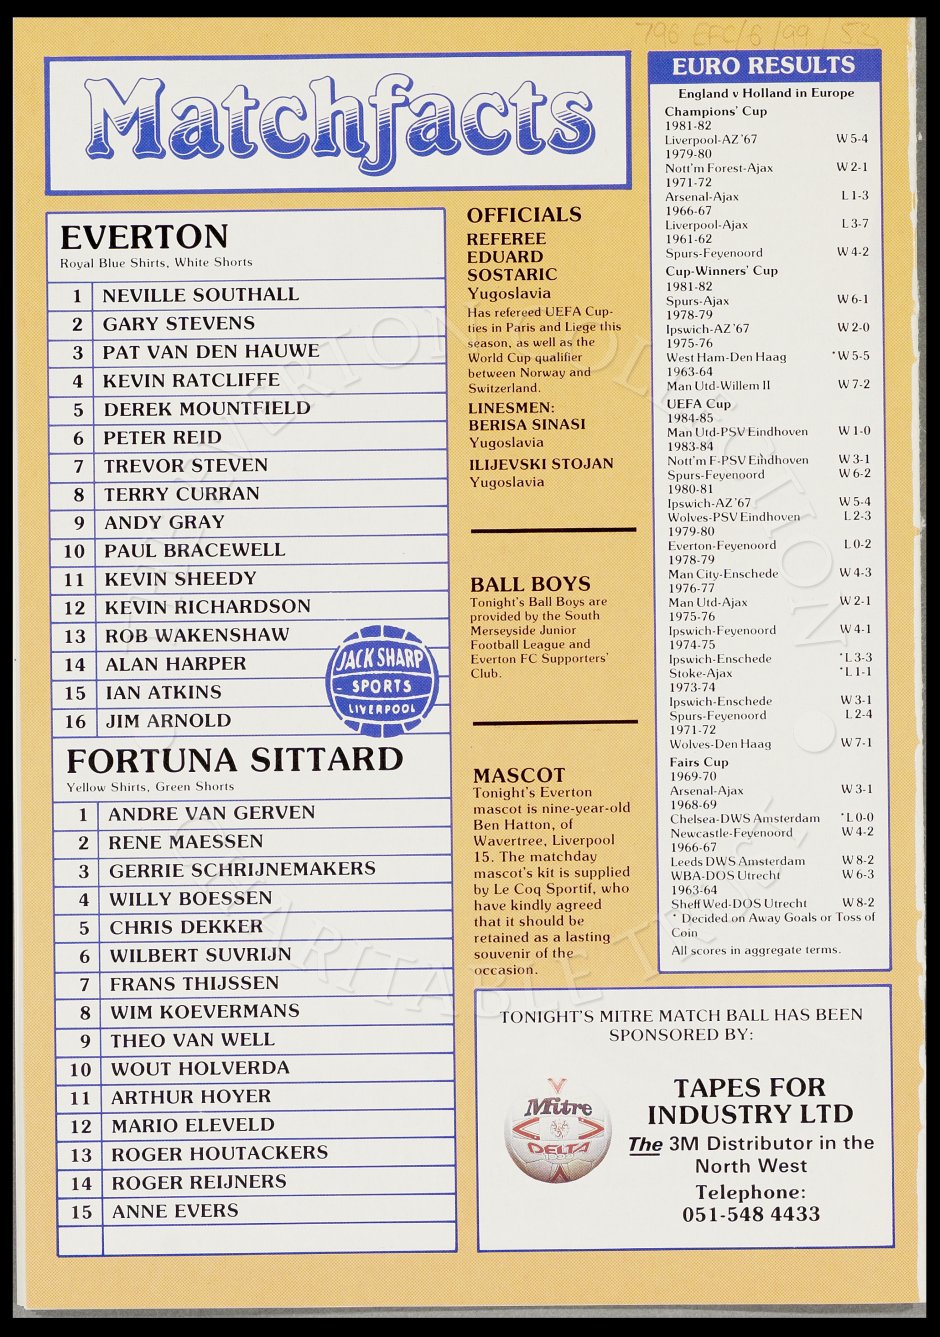 796 EFC/6/99/53
Matchfacts
EVERTON
Royal Blue Shirts, White Shorts
1 NEVILLE SOUTHALL
2 GARY STEVENS
3 PAT VAN DEN HAUWE
4 KEVIN RATCLIFFE
5 DEREK MOUNTFIELD
6 PETER REID
7 TREVOR STEVEN
8 TERRY CURRAN
9 ANDY GRAY
10 PAUL BRACEWELL
11 KEVIN SHEEDY
12 KEVIN RICHARDSON
13 ROB WAKENSHAW
14 ALAN HARPER
15 IAN ATKINS
16 JIM ARNOLD
JACK SHARP
SPORTS
LIVERPOOL
FORTUNA SITTARD
Yellow Shirts, Green Shorts
1 ANDRE VAN GERVEN
2 RENE MAESSEN
3 GERRIE SCHRIJNEMAKERS
4 WILLY BOESSEN
5 CHRIS DEKKER
6 WILBERT SUVRIJN
7 FRANS THIJSSEN
8 WIM KOEVERMANS
9 THEO VAN WELL
10 WOUT HOLVERDA
11 ARTHUR HOYER
12 MARIO ELEVELD
13 ROGER HOUTACKERS
14 ROGER REIJNERS
15 ANNE EVERS
OFFICIALS
REFEREE
EDUARD
SOSTARIC
Yugoslavia
Has refereed UEFA Cup-
ties in Paris and Liege this
season, as well as the
World Cup qualifier
between Norway and
Switzerland.
LINESMEN:
BERISA SINASI
Yugoslavia
ILIJEVSKI STOJAN
Yugoslavia
BALL BOYS
Tonight's Ball Boys are
provided by the South
Merseyside Junior
Football League and
Everton FC Supporters'
Club.
MASCOT
Tonight's Everton
mascot is nine-year-old
Ben Hatton, of
Wavertree, Liverpool
15. The matchday
mascot's kit is supplied
by Le Coq Sportif, who
have kindly agreed
that it should be
retained as a lasting
souvenir of the
occasion.
EURO RESULTS
England v Holland in Europe
Champions' Cup
1981-82
Liverpool-AZ '67 W 5-4
1979-80
Nott'm Forest-Ajax W 2-1
1971-72
Arsenal-Ajax L 1-3
1966-67
Liverpool-Ajax L 3-7
1961-62
Spurs-Feyenoord W 4-2
Cup-Winners' Cup
1981-82
Spurs-Ajax W 6-1
1978-79
Ipswich-AZ '67 W 2-0
1975-76
West Ham-Den Haag *W 5-5
1963-64
Man Utd-Willem II W 7-2
UEFA Cup
1984-85
Man Utd-PSV Eindhoven W 1-0
1983-84
Nott'm F-PSV Eindhoven W 3-1
Spurs-Feyenoord W 6-2
1980-81
Ipswich-AZ '67 W 5-4
Wolves-PSV Eindhoven L 2-3
1979-80
Everton-Feyenoord L 0-2
1978-79
Man City-Enschede W 4-3
1976-77
Man Utd-Ajax W 2-1
1975-76
Ipswich-Feyenoord W 4-1
1974-75
Ipswich-Enschede *L 3-3
Stoke-Ajax *L 1-1
1973-74
Ipswich-Enschede W 3-1
Spurs-Feyenoord L 2-4
1971-72
Wolves-Den Haag W 7-1
Fairs Cup
1969-70
Arsenal-Ajax W 3-1
1968-69
Chelsea-DWS Amsterdam *L 0-0
Newcastle-Feyenoord W 4-2
1966-67
Leeds DWS Amsterdam W 8-2
WBA-DOS Utrecht W 6-3
1963-64
Sheff Wed-DOS Utrecht W 8-2
* Decided on Away Goals or Toss of
Coin
All scores in aggregate terms.
TONIGHT'S MITRE MATCH BALL HAS BEEN
SPONSORED BY:
Mitre
DELTA
TAPES FOR
INDUSTRY LTD
The 3M Distributor in the
North West
Telephone:
051-548 4433
THE EVERTON COLLECTION
CHARITABLE TRUST